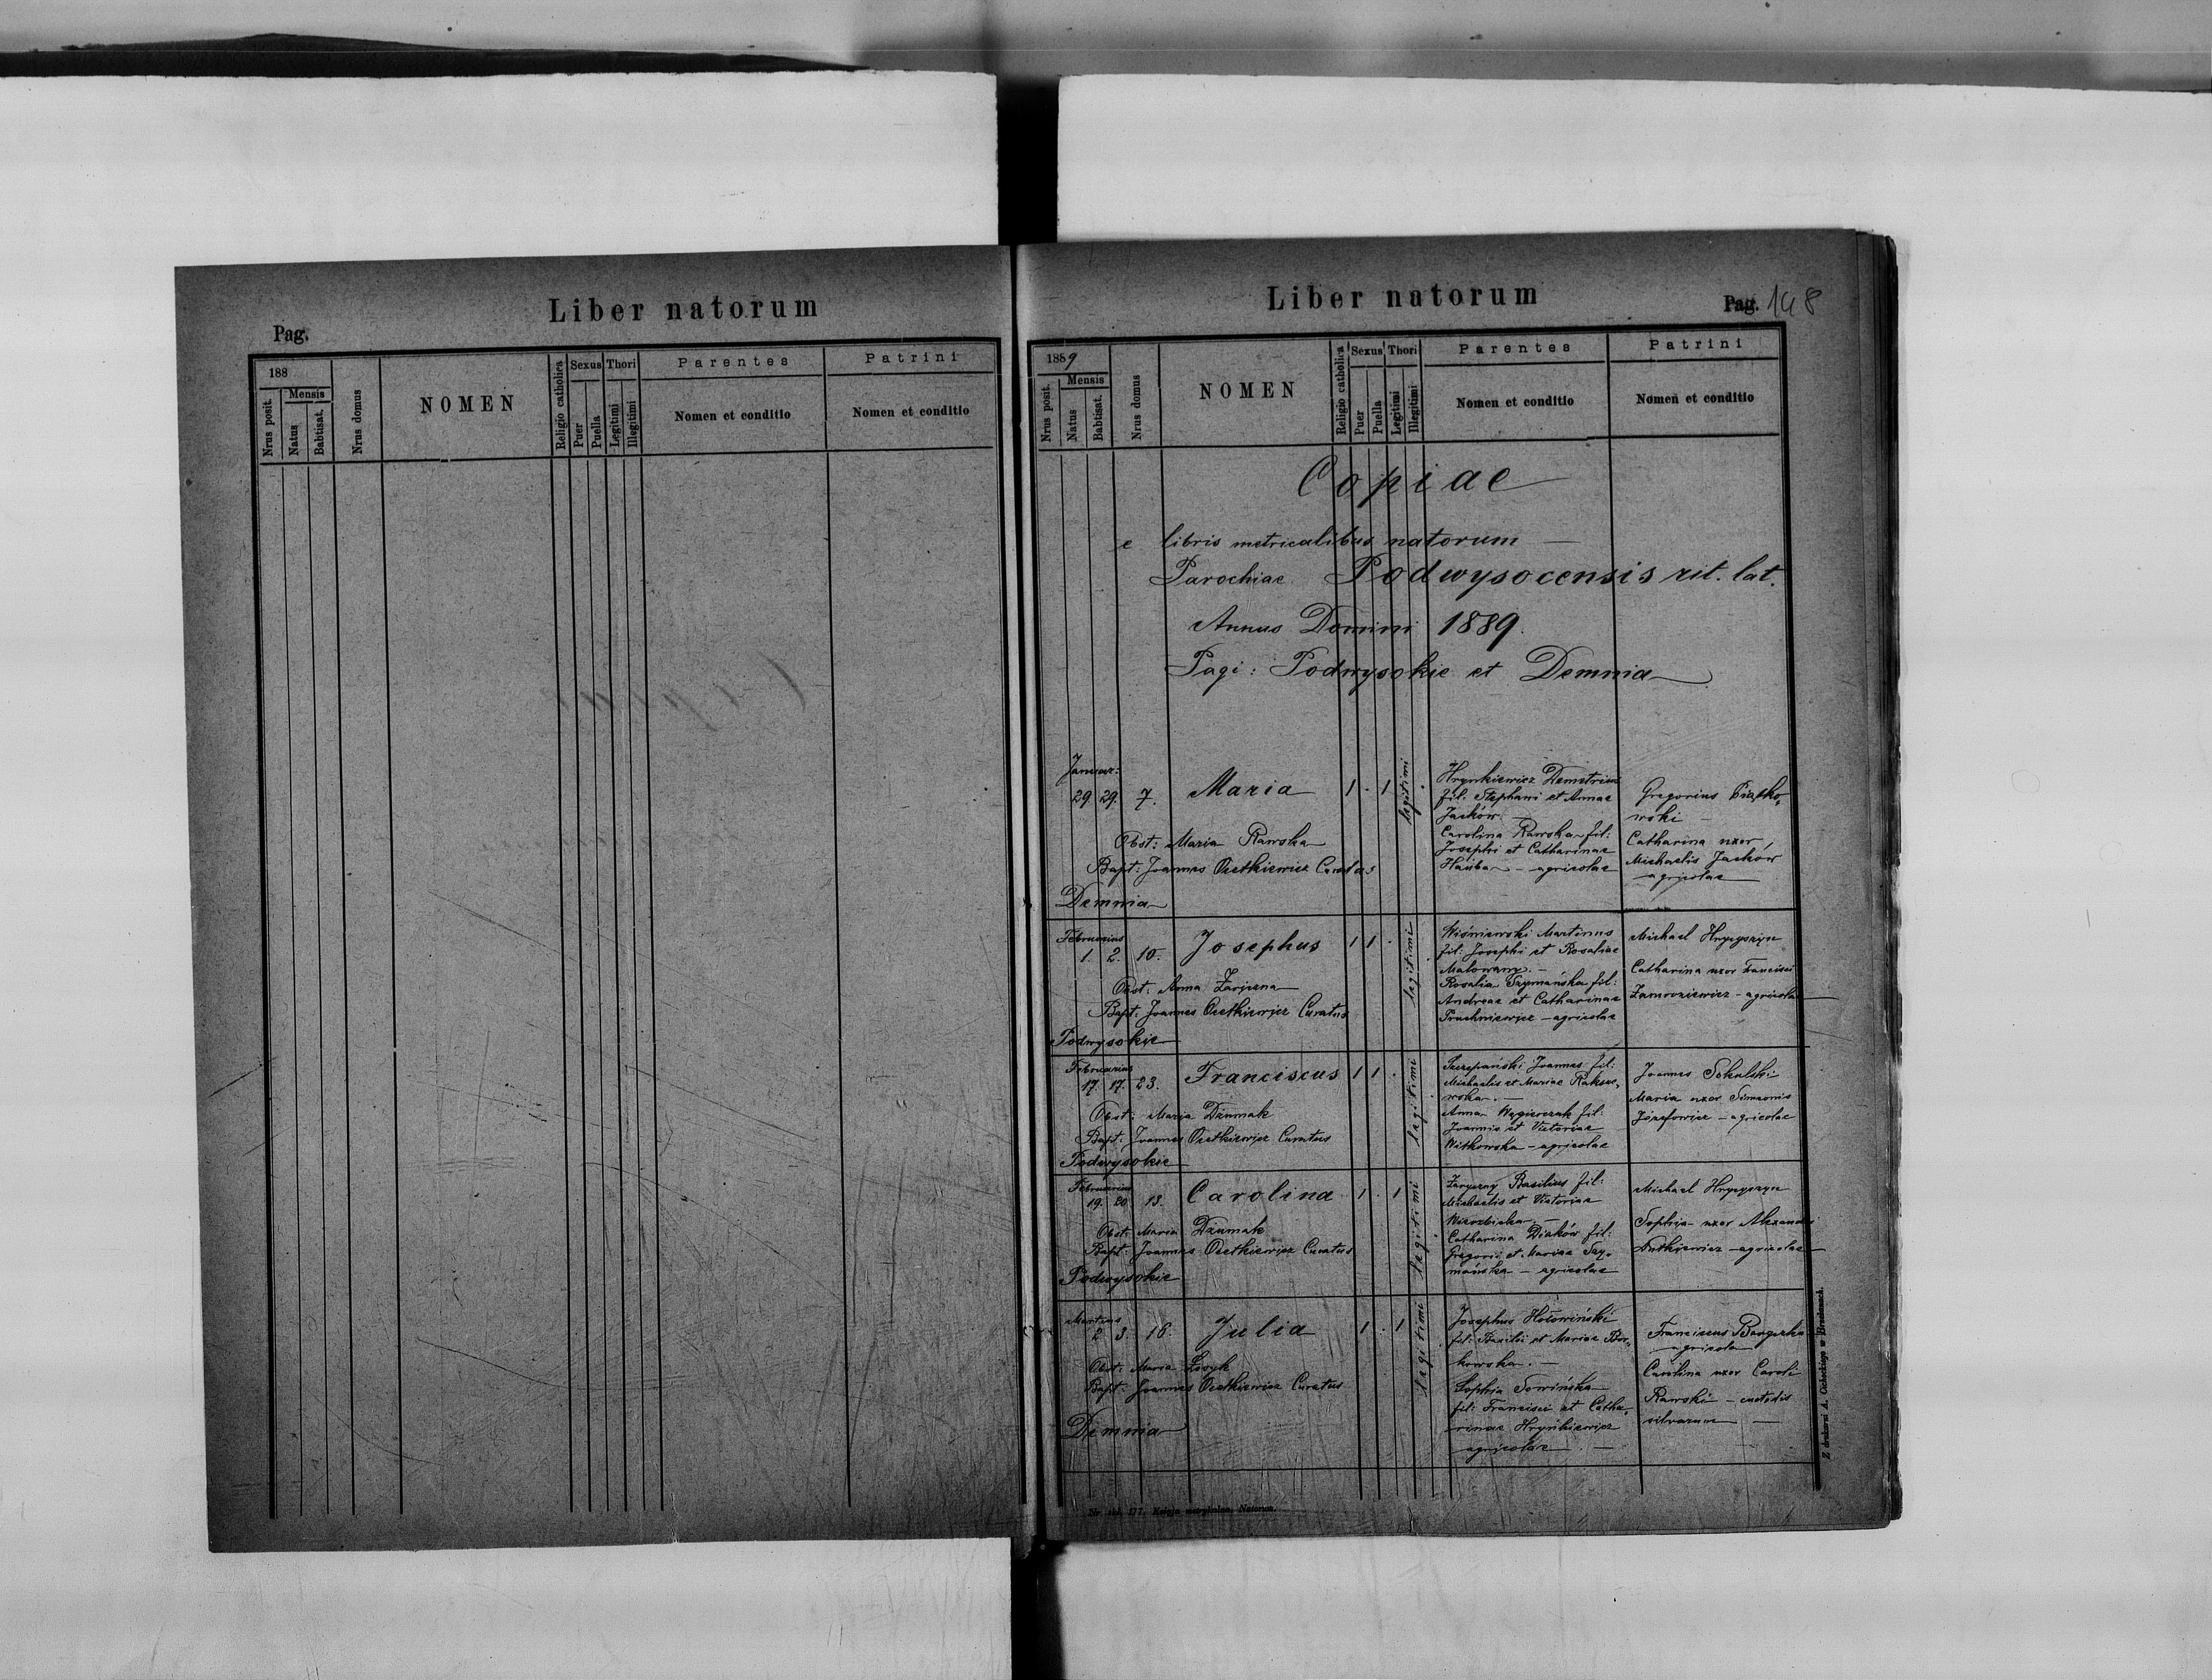 Liber natorum
Pag.
188
Mensis
Nrus posit.
Natus
Babtisat.
Nrus domus
NOMEN
Religio catholica
Sexus
Puer
Puella
Thori
Legitimi
Illegitimi
Parentes
Nomen et conditio
Patrini
Nomen et conditio
Liber natorum
Pag. 148
1889
Mensis
Nrus posit.
Natus
Babtisat.
Nrus domus
NOMEN
Religio catholica
Sexus
Puer
Puella
Thori
Legitimi
Illegitimi
Parentes
Nomen et conditio
Patrini
Nomen et conditio
Copiae
e libris metricalibus natorum
Parochiae Podwysocensis rit. lat.
Annus Domini 1889.
Pagi: Podwysokie et Demnia
Januar:
29 29. 7. Maria 1 . 1 legitimi .
Obst: Maria Rawska
Bapt: Joannes Ocetkiewicz Curatus
Demnia
Hrynkiewicz Demetrius
fil: Stephani et Annae
Jacków
Carolina Rawska fil:
Josephi et Catharinae
Hańba - agricolae
Gregorius Piątko,
wski
Catharina uxor
Michaelis Jacków
agricolae
Februarius
1. 2. 10. Josephus 1 1 . legitimi
Obst: Anna Zaryczna
Bapt: Joannes Ocetkiewicz Curatus
Podwysokie
Wiśniewski Martinus
fil: Josephi et Rosaliae
Malowany.
Rosalia Szymańska fil:
Andreae et Catharinae
Pruchniewicz - agricolae
Michael Hrycyszyn
Catharina uxor Francisci
Zamroziewicz - agricolae
Februarius
17. 17. 23. Franciscus 1 1 . legitimi
Obst: Maria Dzumak
Bapt: Joannes Ocetkiewicz Curatus
Podwysokie
Szczepański Joannes fil:
Michaelis et Mariae
wska.
Anna Węgierczak fil:
Joannis et Victoriae
Witkowska - agricolae
Joannes Sokulski
Maria uxor Simeonis
Józefowicz - agricolae
Februarius
19. 20. 13. Carolina 1 . 1 legitimi
Obst: Maria Dzumak
Bapt: Joannes Ocetkiewicz Curatus
Podwysokie
Zaryczny Basilius fil:
Michaelis et Victoriae
Wierzbicka.
Catharina Diaków fil:
Gregorii et Mariae Szy,
mańska - agricolae
Michael Hrycyszyn
Sophia uxor Alexandri
Dutkiewicz - agricolae
Martius
2. 3. 16. Julia 1 . 1 legitimi
Obst: Maria Łosyk
Bapt: Joannes Ocetkiewicz Curatus
Demnia
Josephus Hołowiński
fil: Basilii et Mariae Bor,
kowska.
Sophia Sowińska
fil: Francisci et Catha,
rinae Hrynkiewicz
agricolae
Franciscus
agricola
Carolina uxor Caroli
Rawski - custodis
silvarum
Z drukarni A. Cichockiego w Brzeżanach.
177. Księga metrykalna. Natorum.